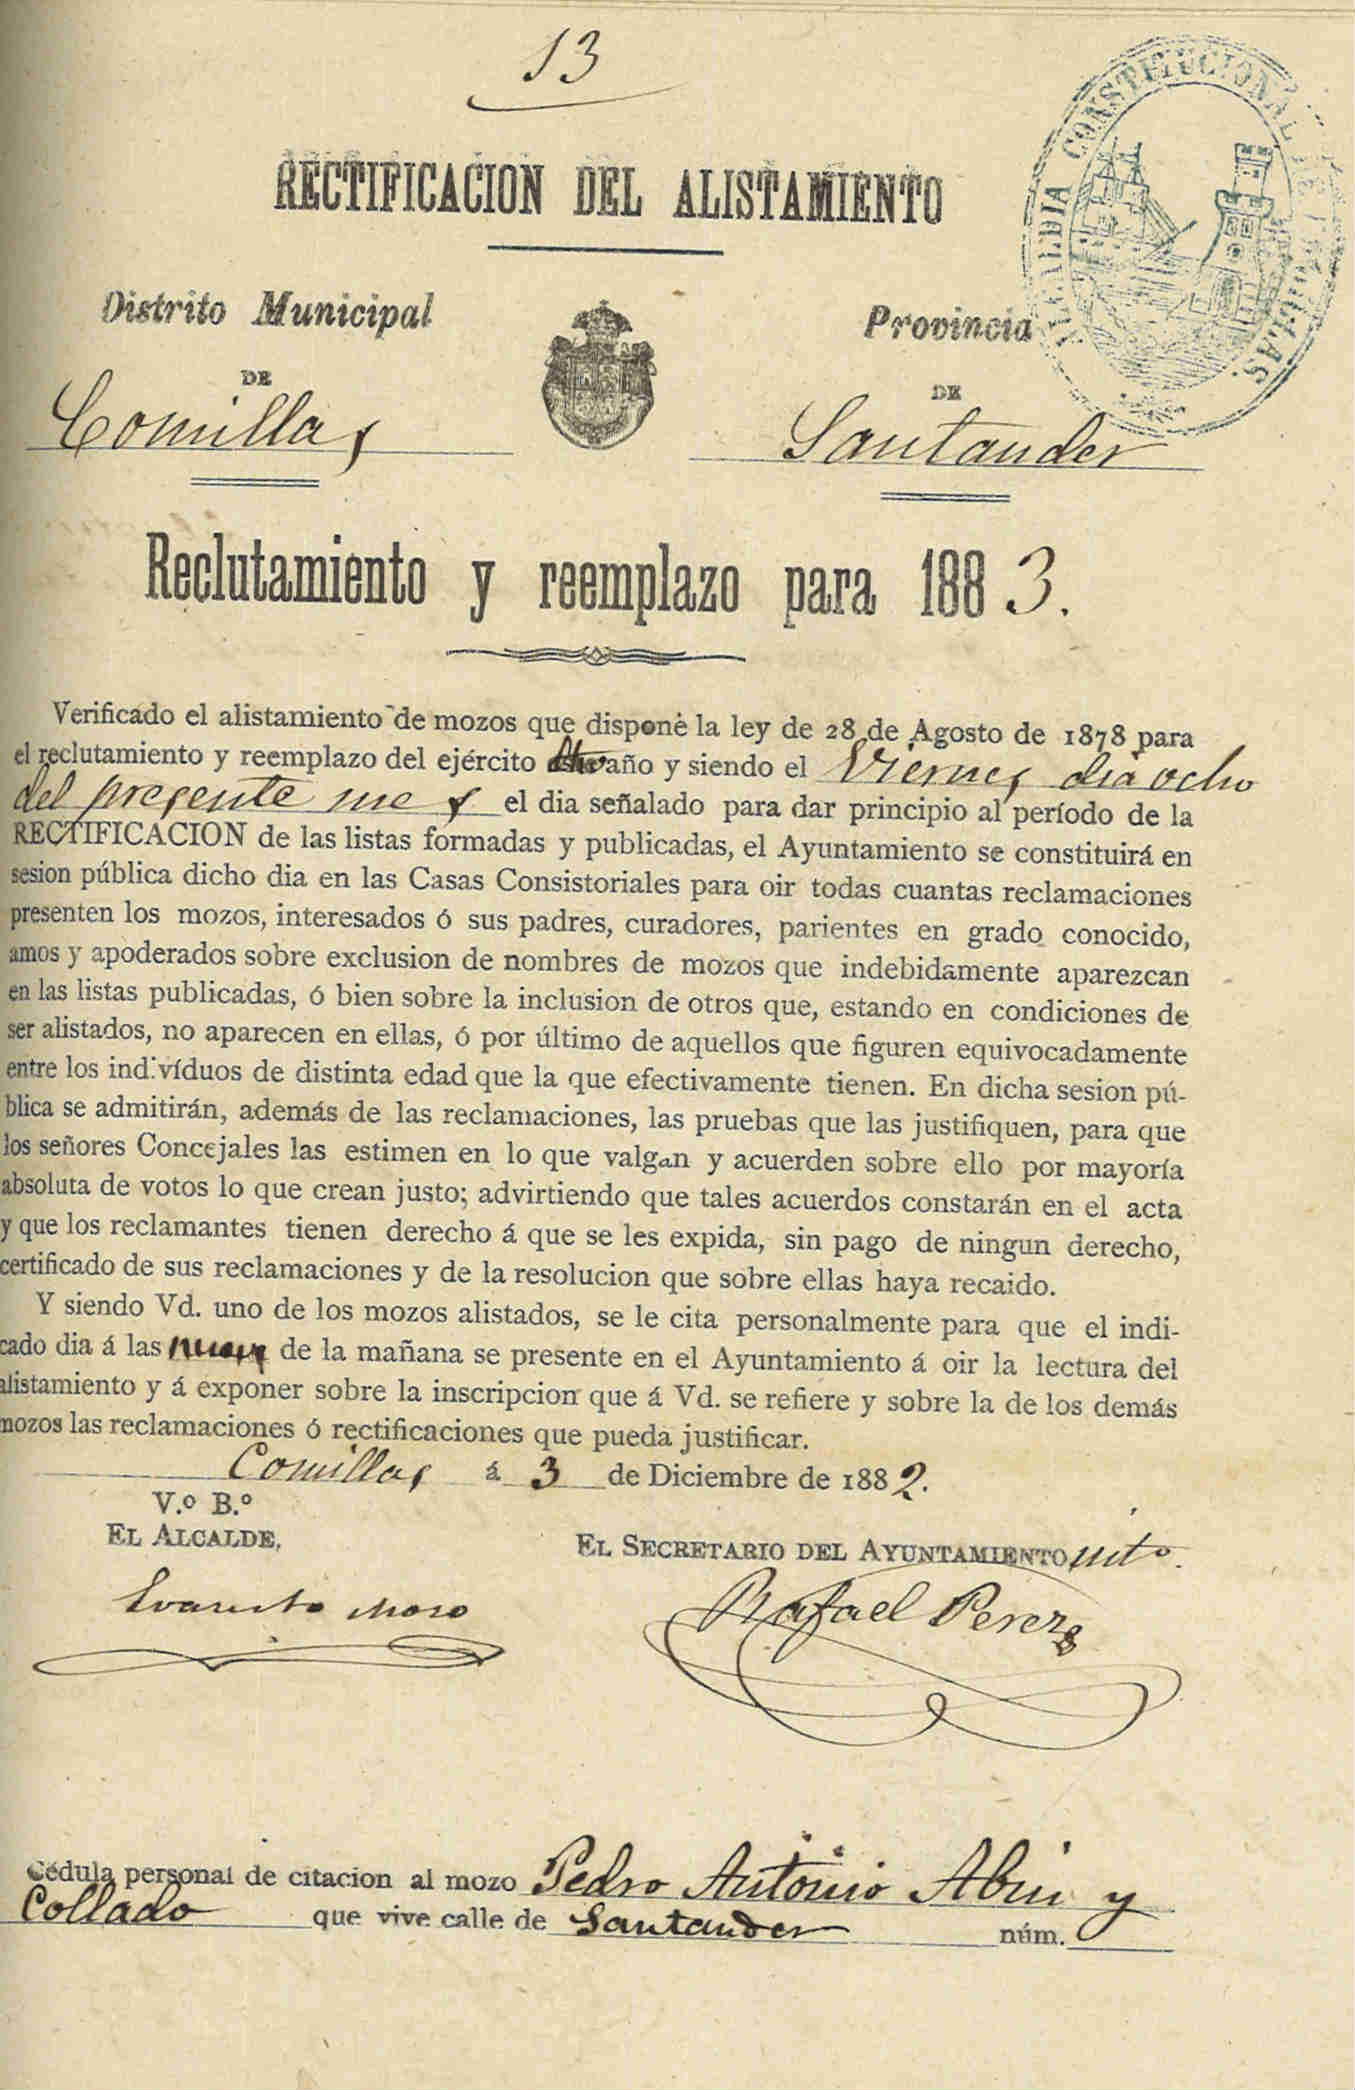 13
ALCALDIA CONSTITUCIONAL DE COMILLAS.
RECTIFICACION DEL ALISTAMIENTO
Distrito Municipal
Provincia
DE
DE
Comillas
Santander
Reclutamiento y reemplazo para 1883.
Verificado el alistamiento de mozos que dispone la ley de 28 de Agosto de 1878 para
el reclutamiento y reemplazo del ejército año y siendo el Viernes dia ocho
del presente mes el dia señalado para dar principio al período de la
RECTIFICACION de las listas formadas y publicadas, el Ayuntamiento se constituirá en
sesion pública dicho dia en las Casas Consistoriales para oir todas cuantas reclamaciones
presenten los mozos, interesados ó sus padres, curadores, parientes en grado conocido,
amos y apoderados sobre exclusion de nombres de mozos que indebidamente aparezcan
en las listas publicadas, ó bien sobre la inclusion de otros que, estando en condiciones de
ser alistados, no aparecen en ellas, ó por último de aquellos que figuren equivocadamente
entre los indivíduos de distinta edad que la que efectivamente tienen. En dicha sesion pú-
blica se admitirán, además de las reclamaciones, las pruebas que las justifiquen, para que
los señores Concejales las estimen en lo que valgan y acuerden sobre ello por mayoría
absoluta de votos lo que crean justo; advirtiendo que tales acuerdos constarán en el acta
y que los reclamantes tienen derecho á que se les expida, sin pago de ningun derecho,
certificado de sus reclamaciones y de la resolucion que sobre ellas haya recaido.
Y siendo Vd. uno de los mozos alistados, se le cita personalmente para que el indi-
cado dia á las nueve de la mañana se presente en el Ayuntamiento á oir la lectura del
alistamiento y á exponer sobre la inscripcion que á Vd. se refiere y sobre la de los demás
mozos las reclamaciones ó rectificaciones que pueda justificar.
Comillas á 3 de Diciembre de 1882.
V.º B.º
EL ALCALDE,
EL SECRETARIO DEL AYUNTAMIENTO int.º
Evaristo Moro
Rafael Perez
Cédula personal de citacion al mozo Pedro Antonio Abin y
Collado que vive calle de Santander núm.